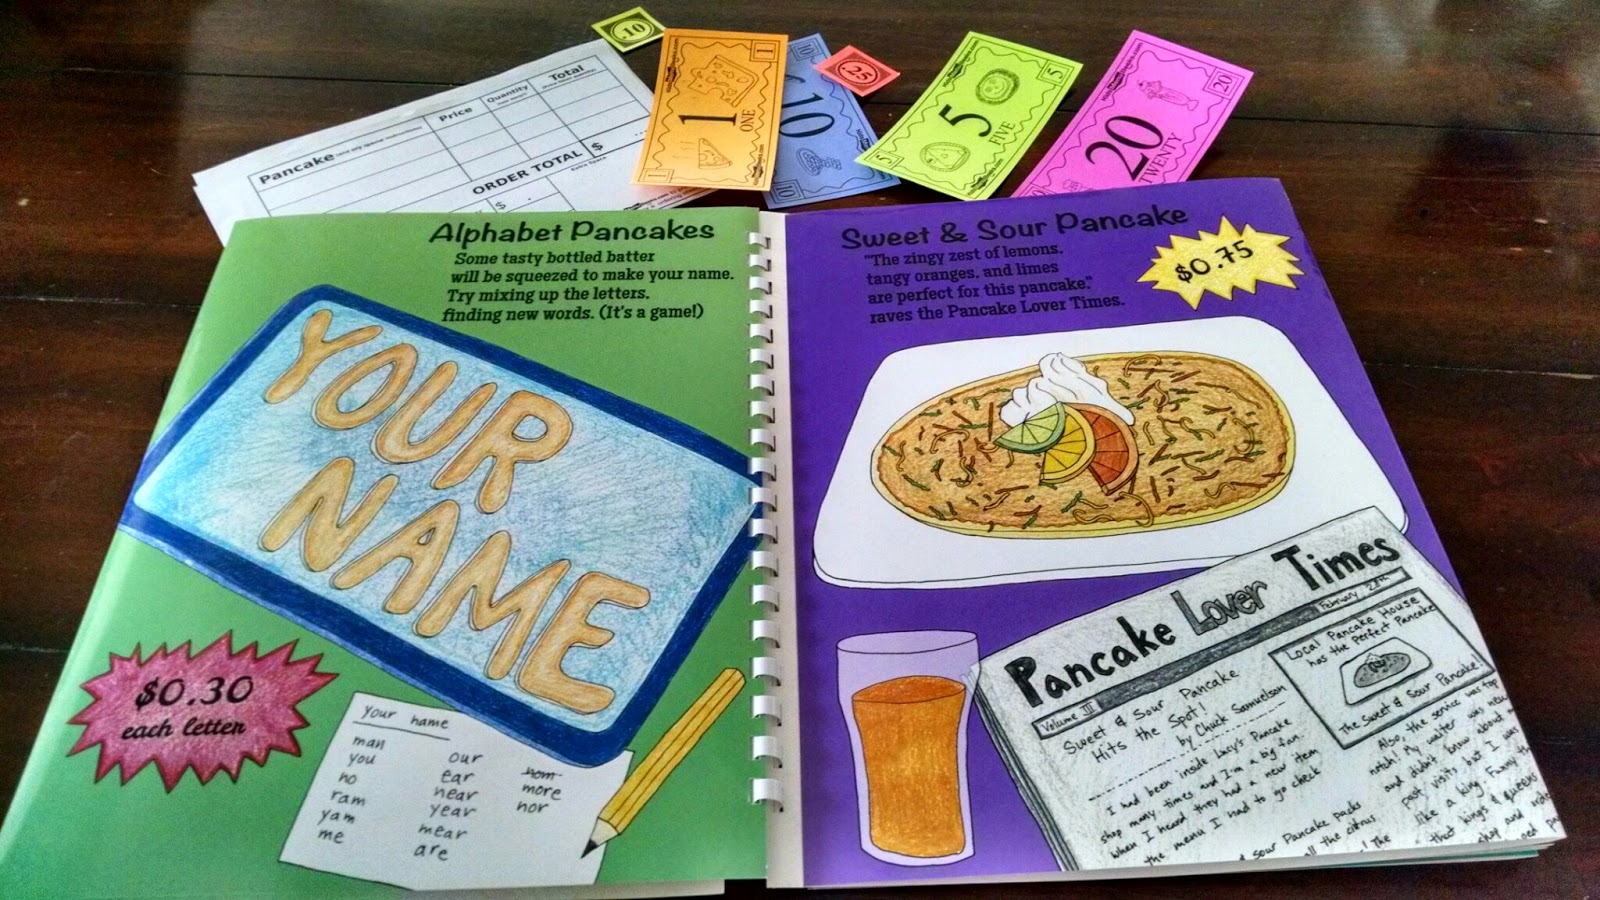 .10
Pancake (and any special instructions)
Price
Quantity
Total
ORDER TOTAL
$
$
1
1
ONE
1
10
10
10
.25
5
5
FIVE
5
20
20
TWENTY
Alphabet Pancakes
Some tasty bottled batter
will be squeezed to make your name.
Try mixing up the letters,
finding new words. (It's a game!)
YOUR
NAME
$0.30
each letter
your name
man
you
no
ram
yam
me
our
ear
near
year
mear
are
hom
more
nor
Sweet & Sour Pancake
"The zingy zest of lemons,
tangy oranges, and limes
are perfect for this pancake,"
raves the Pancake Lover Times.
$0.75
Pancake Lover Times
Volume III
February 28th
Sweet & Sour Pancake
Hits the Spot!
by Chuck Samuelson
I had been inside Lucy's Pancake
shop many times and I'm a big fan.
When I heard they had a new item
the menu I had to go check
sour Pancake packs
all the citrus
Local Pancake House
has the Perfect Pancake
The Sweet & Sour Pancake!
Also, the service was top
notch! My waiter was new
and didn't know about
past visits but I was
like a king. Funny
that kings & queens